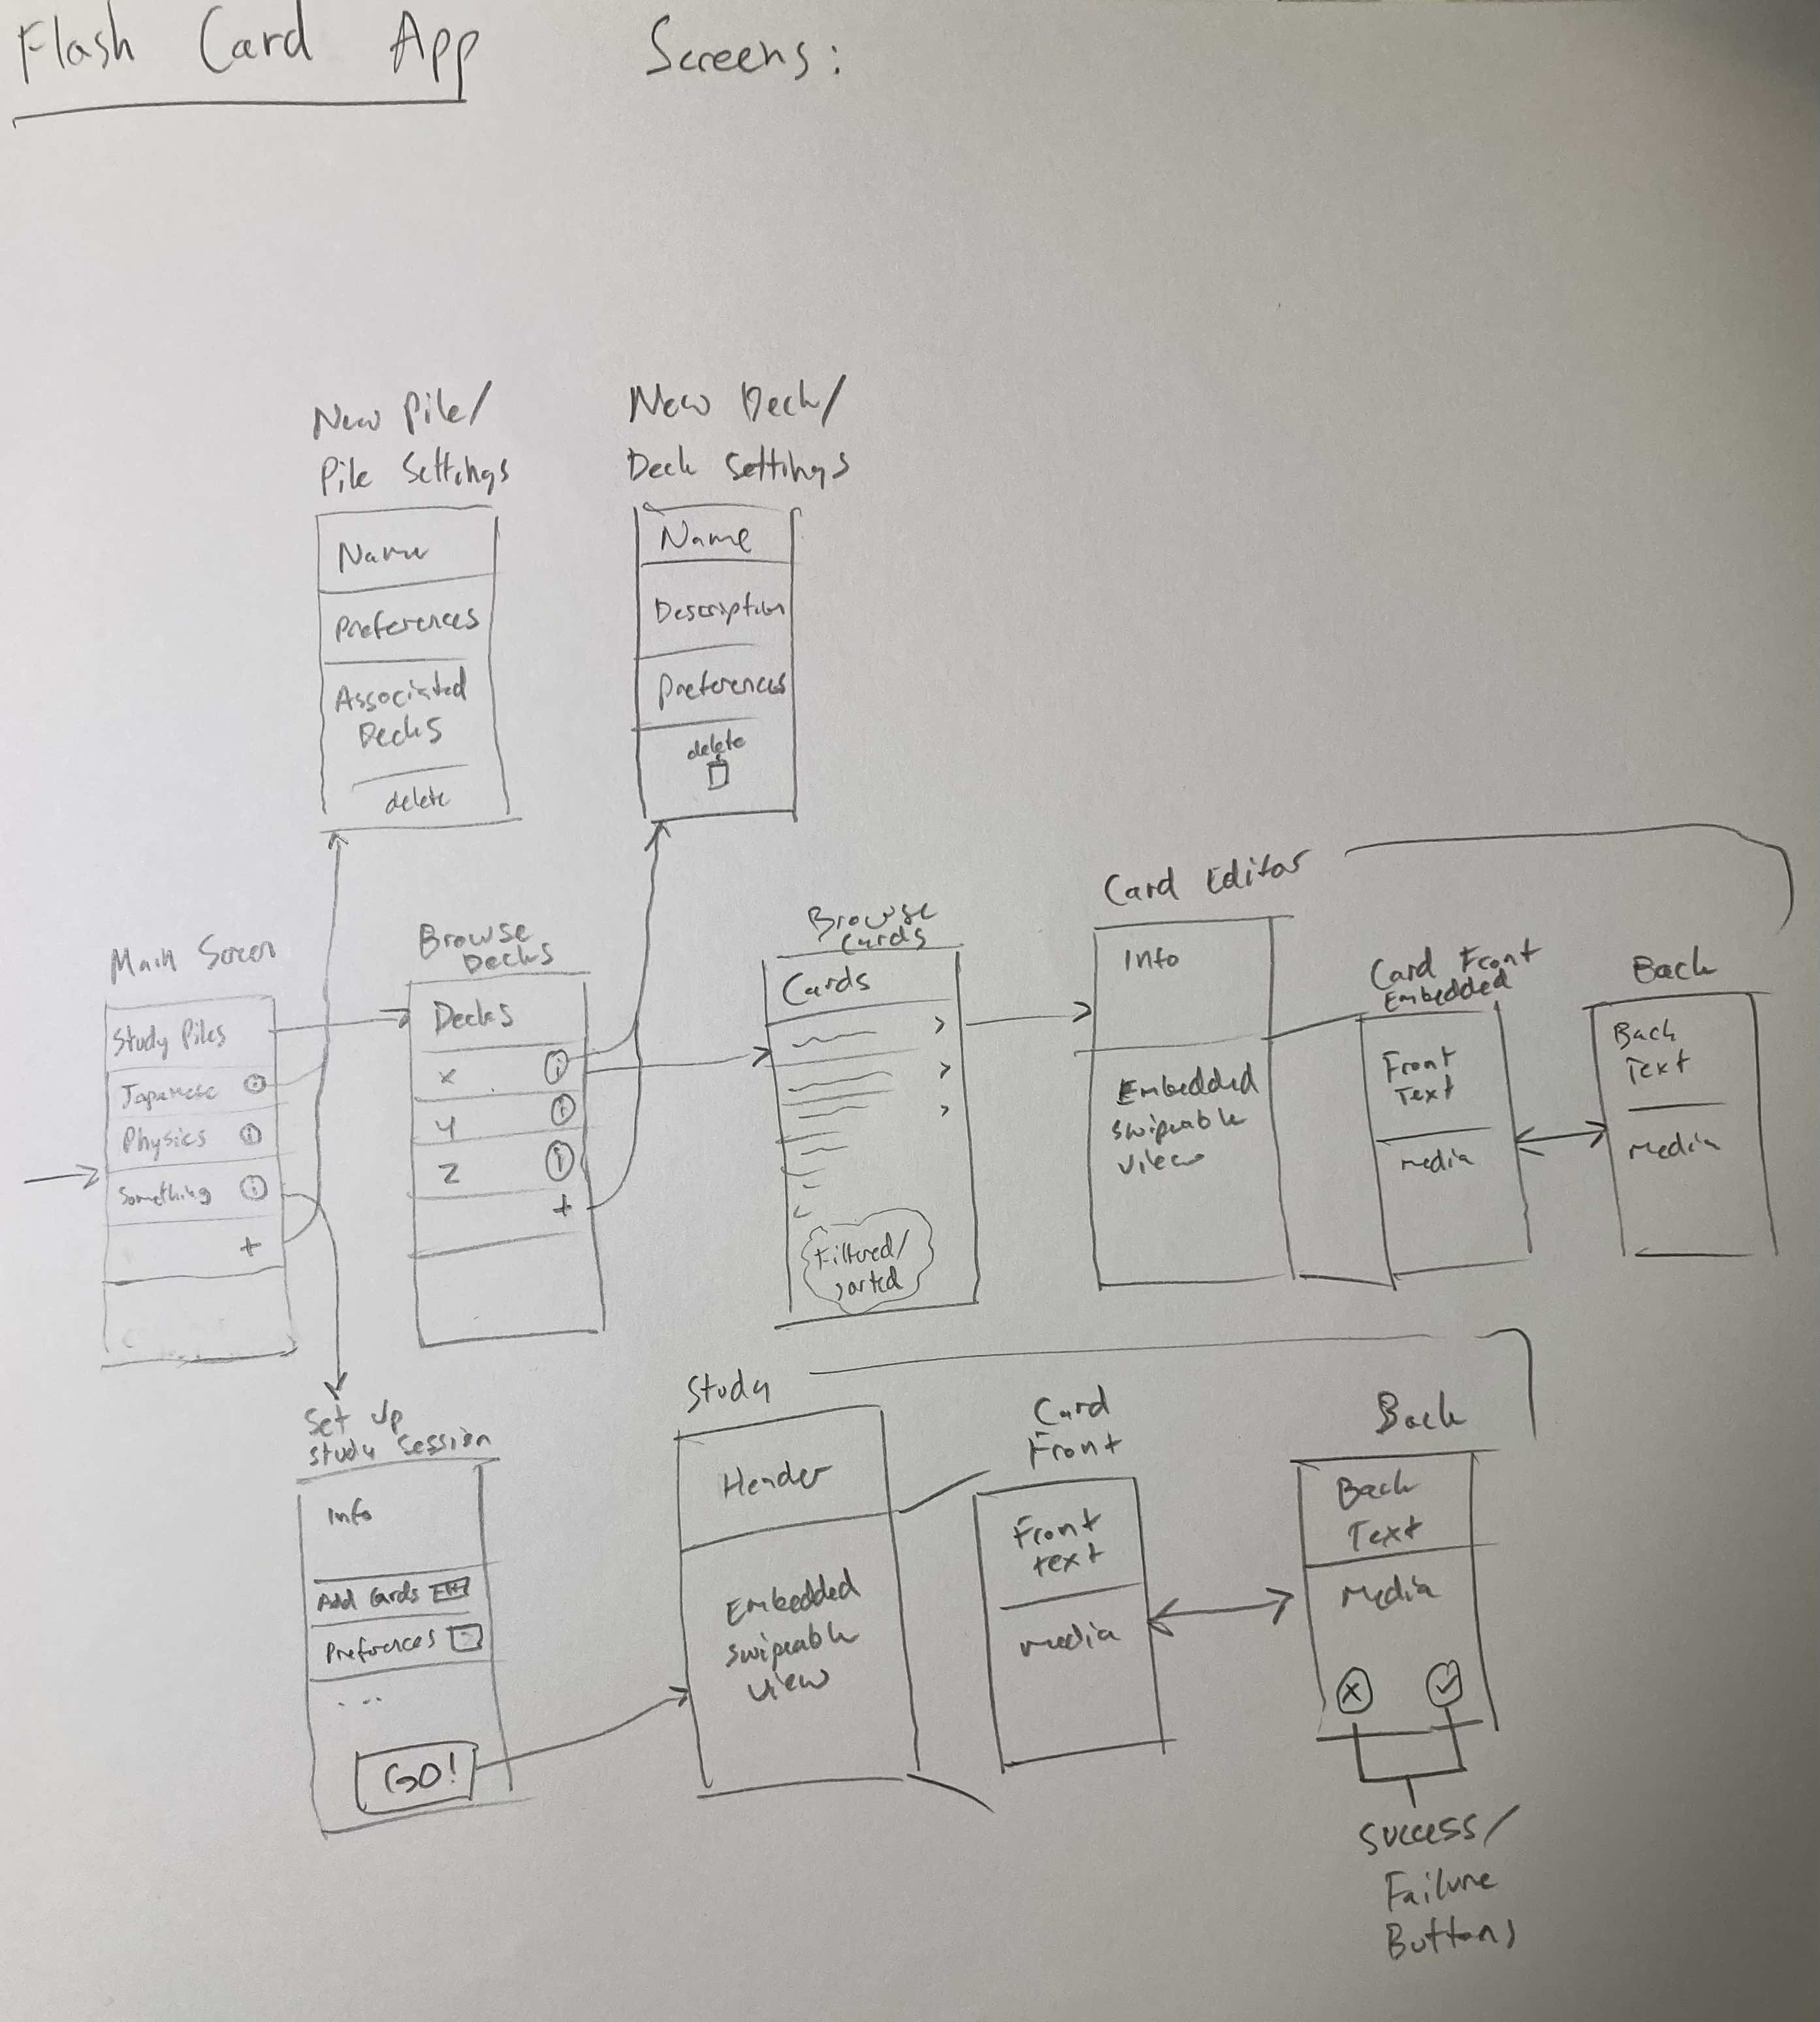 Flash Card App
Screens:
New Pile/
Pile Settings
Name
Preferences
Associated
Decks
delete
New Deck/
Deck Settings
Name
Description
Preferences
delete
Main Screen
Study Piles
Japanese i
Physics i
Something i
+
Browse
Decks
Decks
x i
y i
z i
+
Browse
Cards
Cards
Filtered/
sorted
Card Editor
Info
Embedded
swipeable
view
Card Front
Embedded
Front
Text
media
Back
Back
Text
media
Set Up
Study Session
Info
Add Cards
Preferences
...
GO!
Study
Header
Embedded
swipeable
view
Card
Front
Front
text
media
Back
Back
Text
media
x ✓
Success/
Failure
Buttons